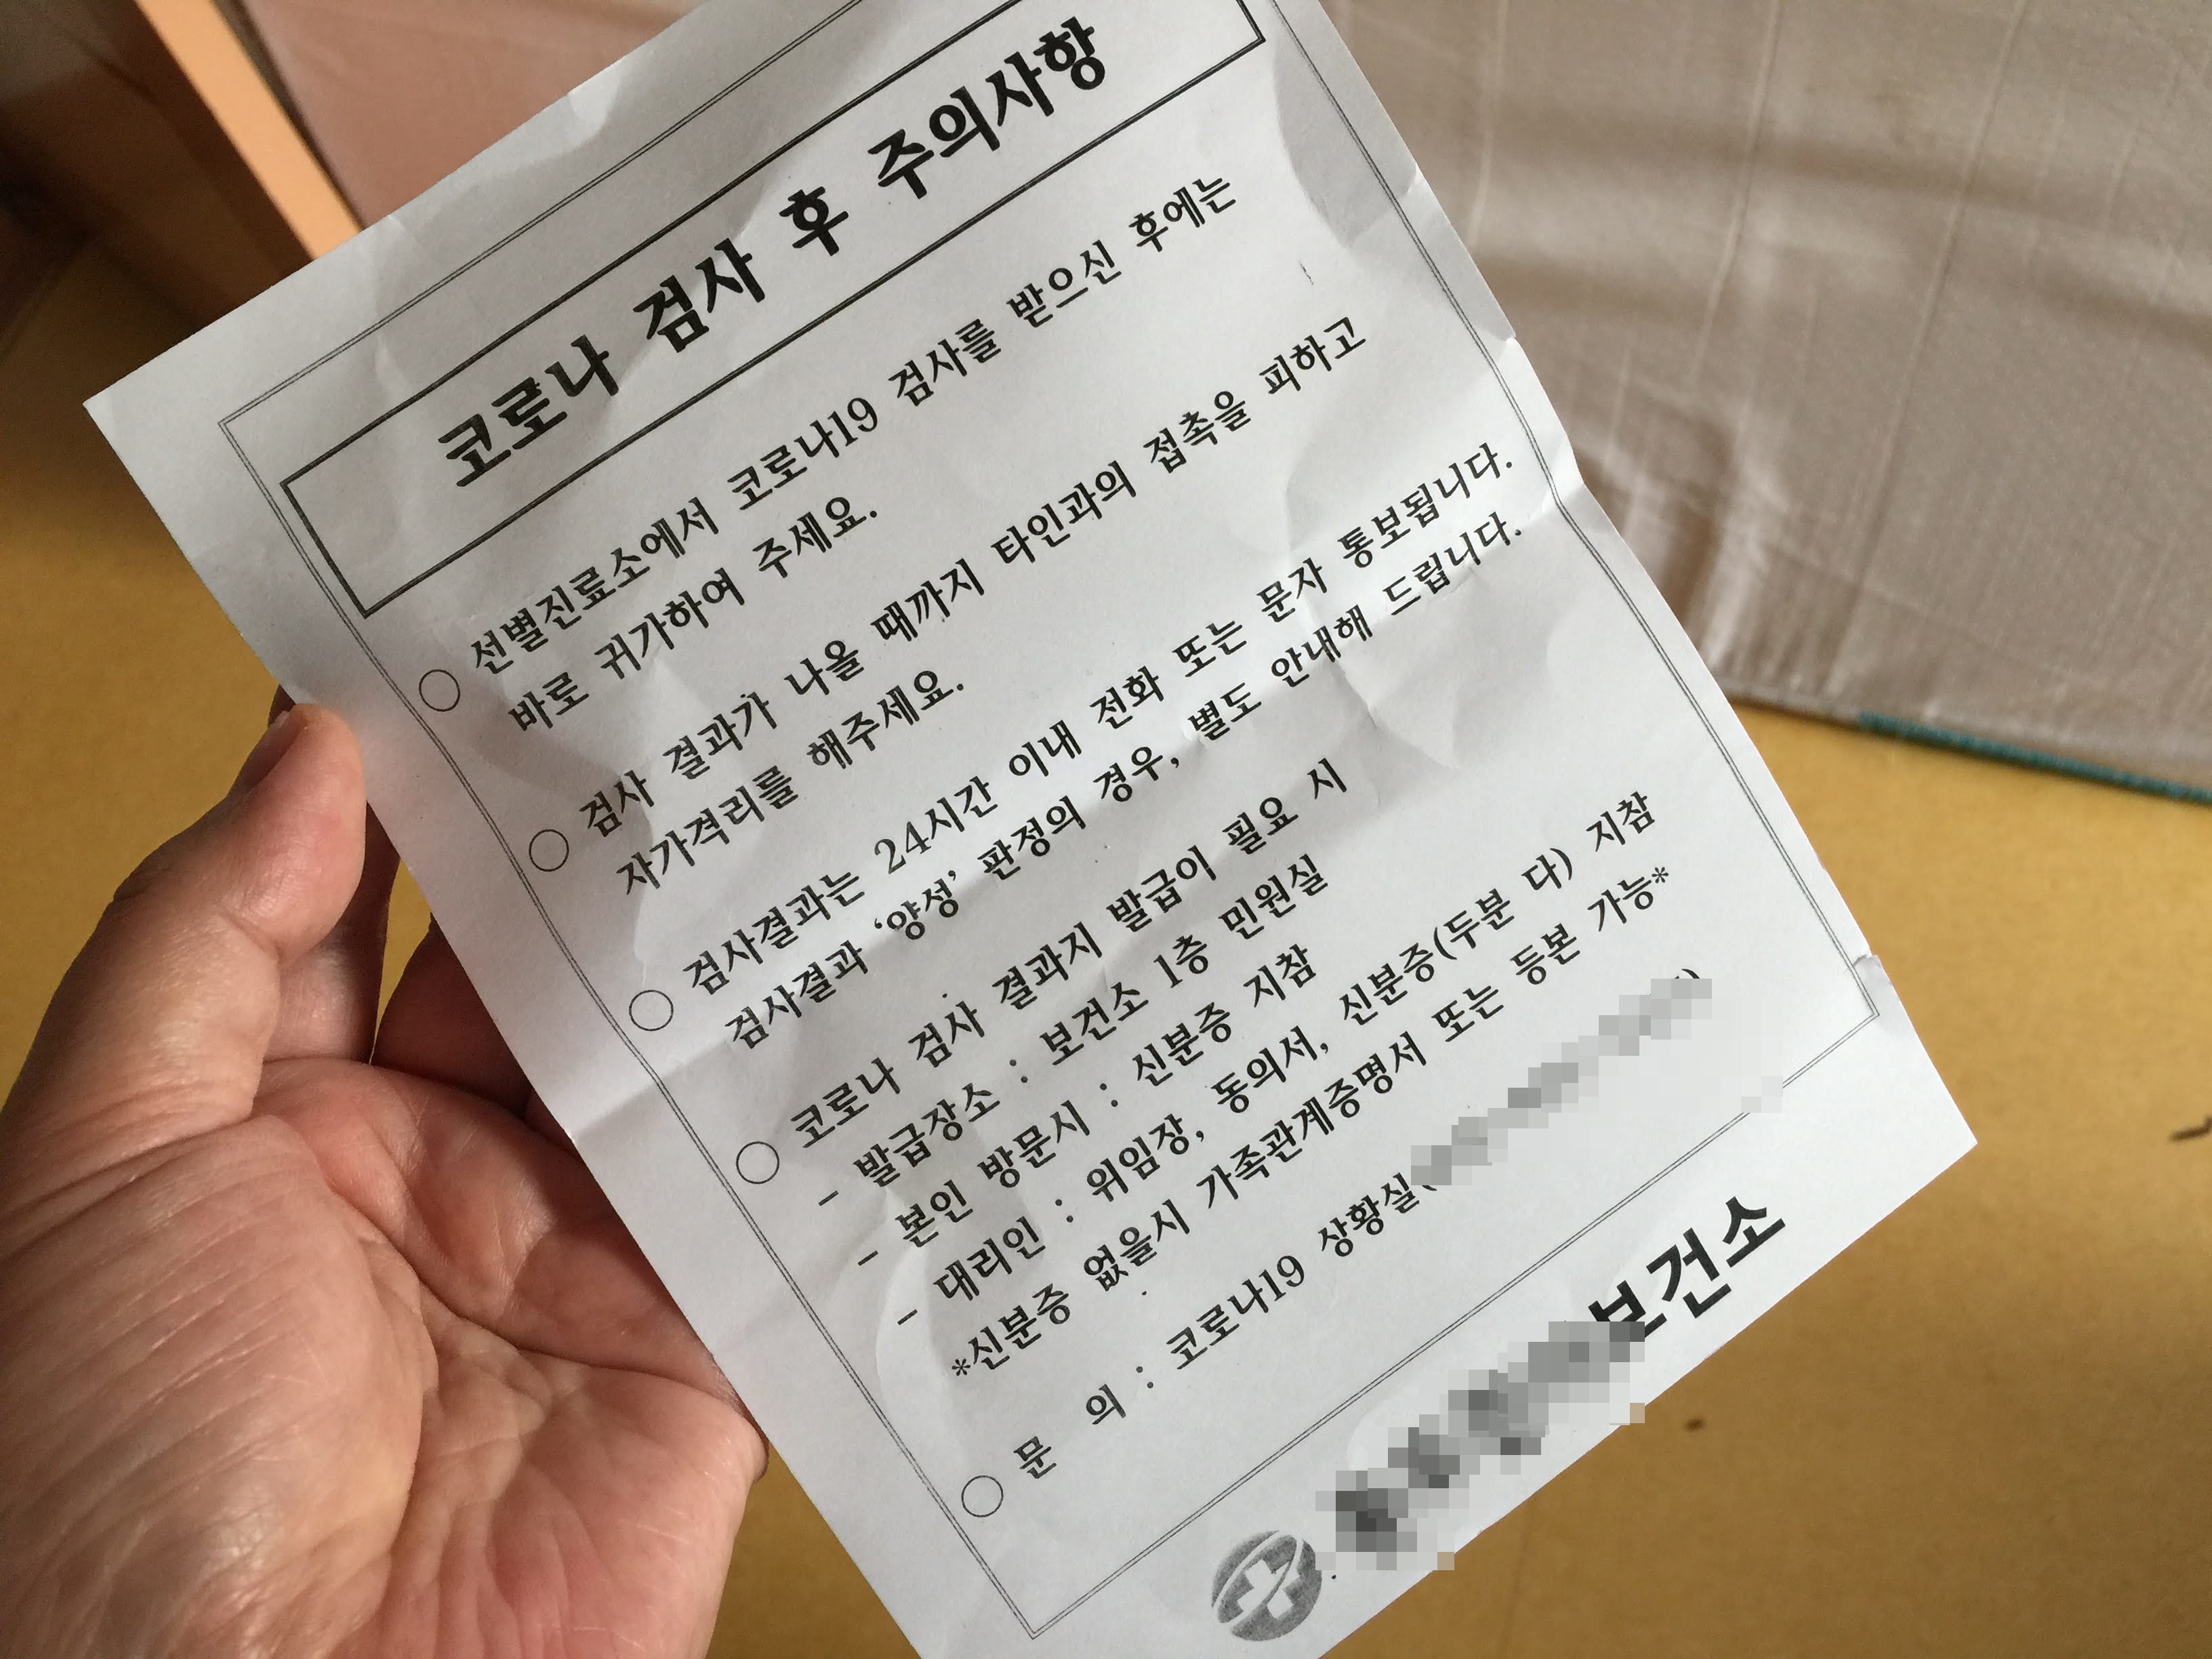 코로나 검사 후 주의사항
○ 선별진료소에서 코로나19 검사를 받으신 후에는
바로 귀가하여 주세요.
○ 검사 결과가 나올 때까지 타인과의 접촉을 피하고
자가격리를 해주세요.
○ 검사결과는 24시간 이내 전화 또는 문자 통보됩니다.
검사결과 ‘양성’ 판정의 경우, 별도 안내해 드립니다.
○ 코로나 검사 결과지 발급이 필요 시
- 발급장소 : 보건소 1층 민원실
- 본인 방문시 : 신분증 지참
- 대리인 : 위임장, 동의서, 신분증(두분 다) 지참
*신분증 없을시 가족관계증명서 또는 등본 가능*
○ 문 의 : 코로나19 상황실(
보건소